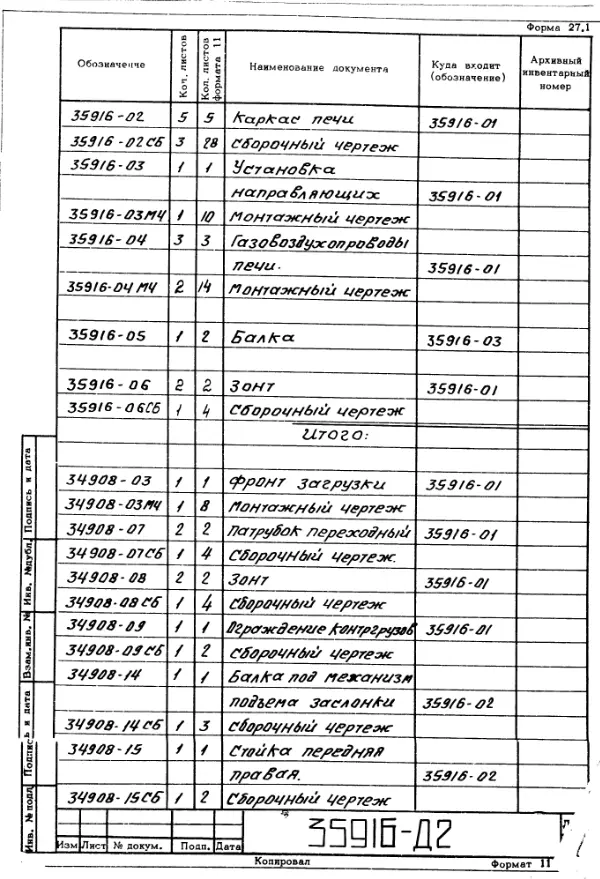 Форма 27.1
Обозначение Кол. листов Кол. листов формата 11 Наименование документа Куда входит (обозначение) Архивный инвентарный номер
35916-02 5 5 Каркас печи 35916-01
35916-02СБ 3 28 Сборочный чертеж
35916-03 1 1 Установка
направляющих 35916-01
35916-03МЧ 1 10 Монтажный чертеж
35916-04 3 3 Газовоздухопроводы
печи. 35916-01
35916-04МЧ 2 14 Монтажный чертеж
35916-05 1 2 Балка 35916-03
35916-06 2 2 Зонт 35916-01
35916-06СБ 1 4 Сборочный чертеж
Итого:
34908-03 1 1 Фронт загрузки 35916-01
34908-03МЧ 1 8 Монтажный чертеж
34908-07 2 2 Патрубок переходный 35916-01
34908-07СБ 1 4 Сборочный чертеж.
34908-08 2 2 Зонт 35916-01
34908-08СБ 1 4 Сборочный чертеж
34908-09 1 1 Ограждение контргрузов 35916-01
34908-09СБ 1 2 Сборочный чертеж
34908-14 1 1 Балка под механизм
подъема заслонки 35916-02
34908-14СБ 1 3 Сборочный чертеж
34908-15 1 1 Стойка передняя
правая. 35916-02
34908-15СБ 1 2 Сборочный чертеж
Подпись и дата
Инв. №дубл.
Взам.инв. №
Подпись и дата
Инв. №подл
35916-Д2
Изм Лист № докум. Подп. Дата
Копировал Формат 11